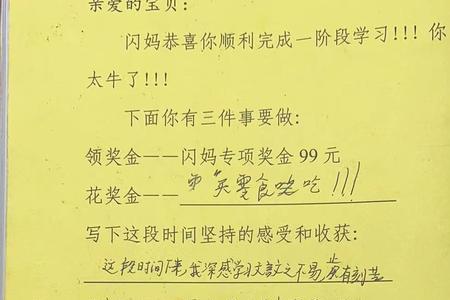 亲爱的宝贝:
闪妈恭喜你顺利完成一阶段学习!!! 你
太牛了!!!
下面你有三件事要做:
领奖金——闪妈专项奖金 99 元
花奖金——买零食吃!!!
写下这段时间坚持的感受和收获:
这段时间下来,我深感学习文言文之不易,唯有刻苦